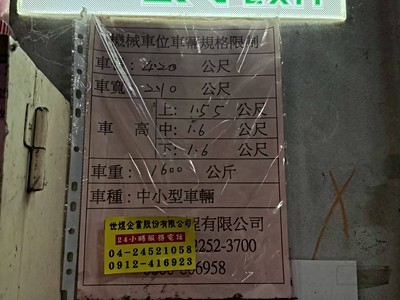 EXIT
機械車位車輛規格限制
車長: 4.20 公尺
車寬: 2.10 公尺
車高 上: 1.55 公尺
中: 1.6 公尺
下: 1.6 公尺
車重: 1600 公斤
車種: 中小型車輛
程有限公司
2252-3700
06958
世煜企業股份有限公司
24小時服務電話
04-24521058
0912-416923